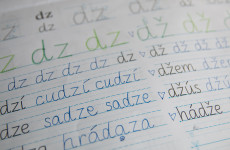 dz
z dz z dz
z dz dz dz dž
dz dz dz dz dž dž dž dž
dzí cudzí cudzí džem džem
dze sadze sadze džús džús
hrádza hádže